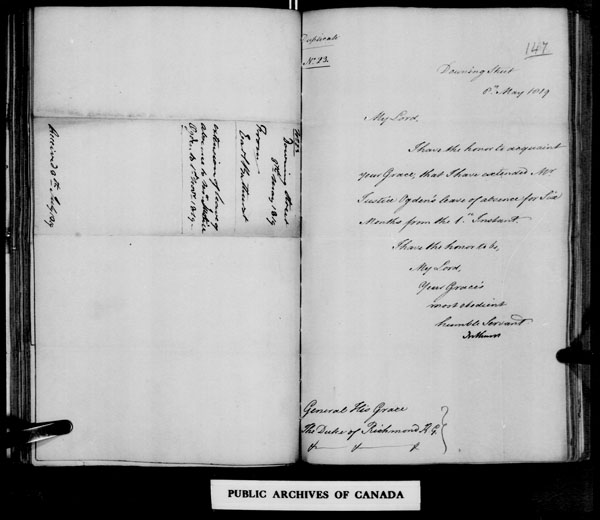 Received 8th July 1819
extension of leave of
absence to Mr Justice
Ogden to 1st Novr 1819
Earl Bathurst
From
8th May 1819
Downing Street
Duplicate
No. 23.
147
Downing Street
8th May 1819
My Lord,
I have the honor to acquaint
your Grace, that I have extended Mr
Justice Ogden's leave of absence for Six
Months from the 1st Instant
I have the honor to be,
My Lord,
Your Grace's
most obedient
humble Servant
Bathurst
General His Grace
The Duke of Richmond K.G.
&c &c &c
PUBLIC ARCHIVES OF CANADA